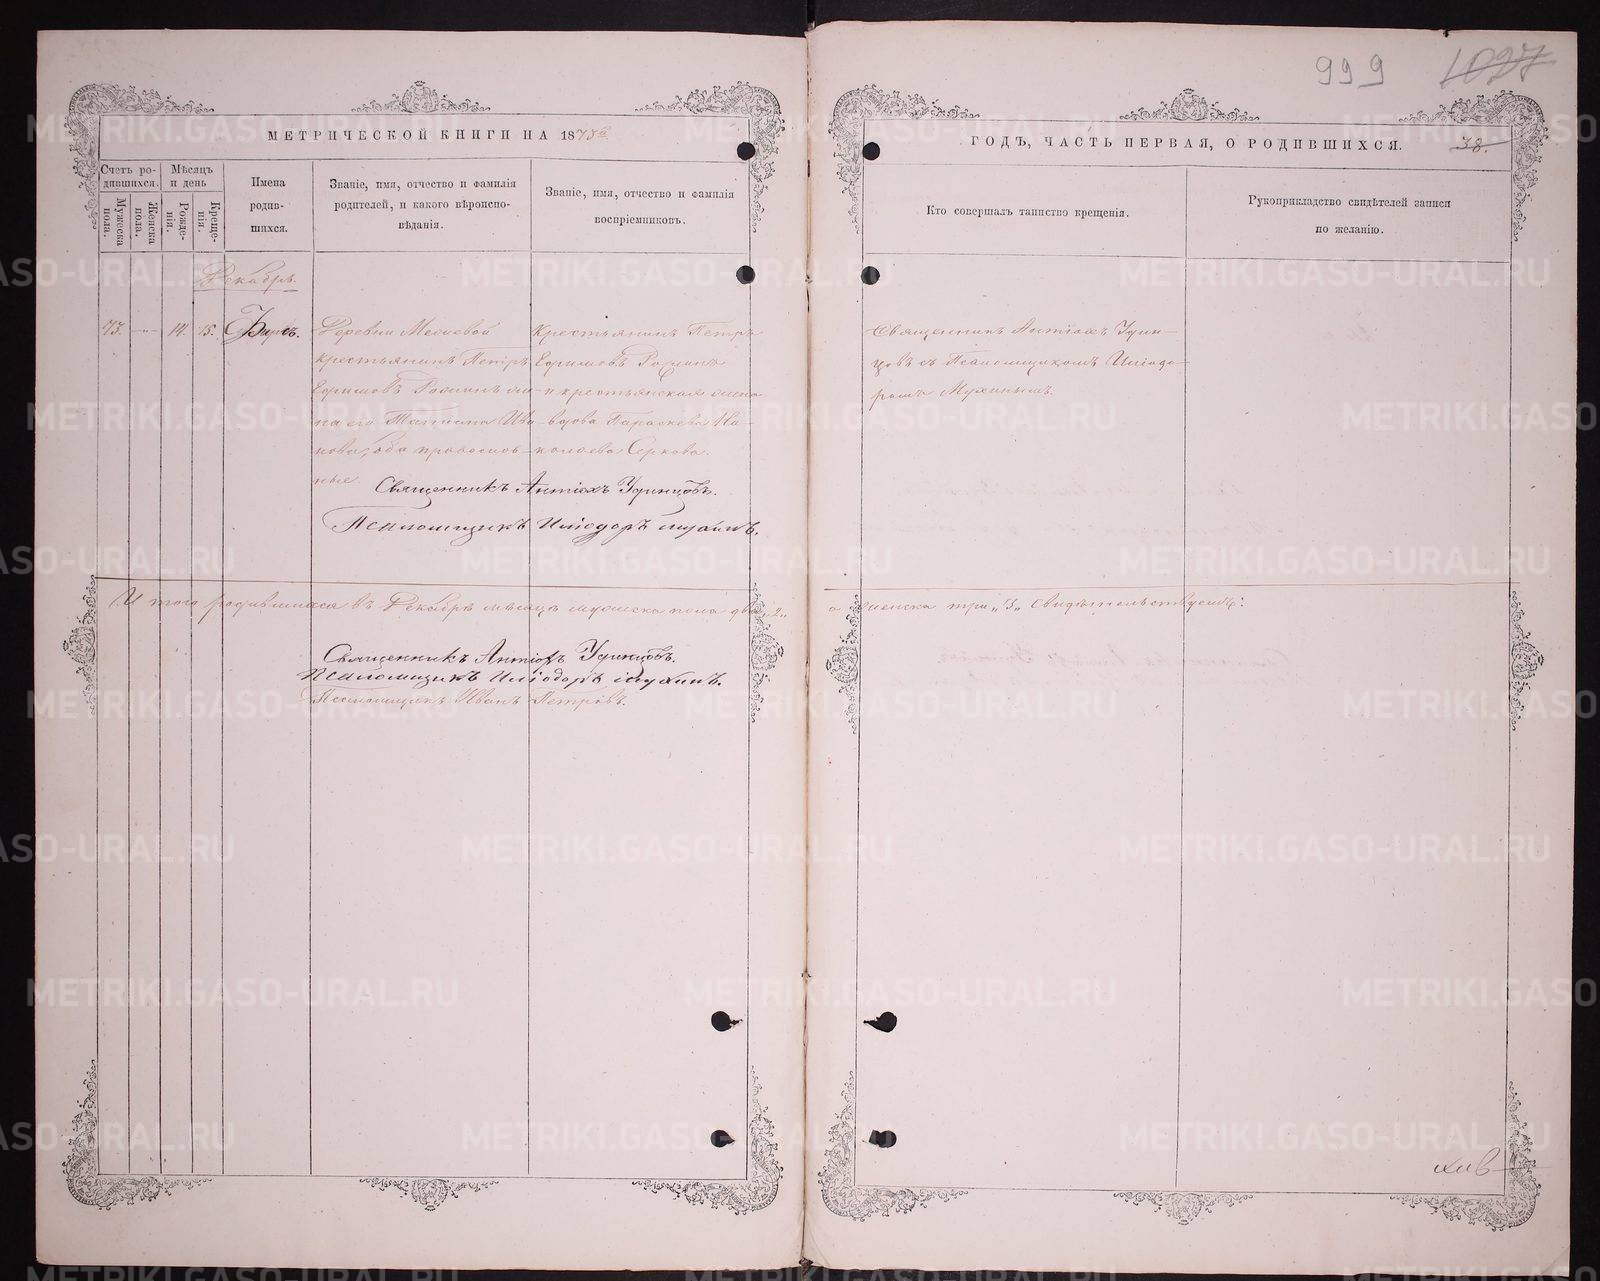 999 1027
МЕТРИЧЕСКОЙ КНИГИ НА 1875й
ГОДЪ, ЧАСТЬ ПЕРВАЯ, О РОДИВШИХСЯ.
38.
Счетъ ро-
дившихся.
Мужеска
пола.
Женска
пола.
Мѣсяцъ
и день
Рожде-
нія.
Креще-
нія.
Имена
родив-
шихся.
Званіе, имя, отчество и фамилія
родителей, и какого вѣроиспо-
вѣданія.
Званіе, имя, отчество и фамилія
воспріемниковъ.
Кто совершалъ таинство крещенія.
Рукоприкладство свидѣтелей записи
по желанію.
Декабрь.
73. 14. 15. Фирсъ.
Деревни
крестьянинъ Петръ
Ефимовъ
на его Татіана Ива-
нова, оба православ-
ные.
Крестьянинъ Петръ
Ефимовъ
и крестьянская
Параскева Ни-
колаева Серкова.
Священникъ Антіохъ Удин-
цовъ съ Псаломщикомъ Иліодо-
ромъ Мухинымъ.
Священникъ Антіохъ Удинцовъ.
Псаломщикъ Иліодоръ Мухинъ.
И того родившихся въ Декабрѣ мѣсяцѣ мужеска пола два „2„
а женска три „3„ Свидѣтельствуемъ:
Священникъ Антіохъ Удинцовъ.
Псаломщикъ Иліодоръ Мухинъ.
Псаломщикъ Иванъ Петровъ.
METRIKI.GASO-URAL.RU